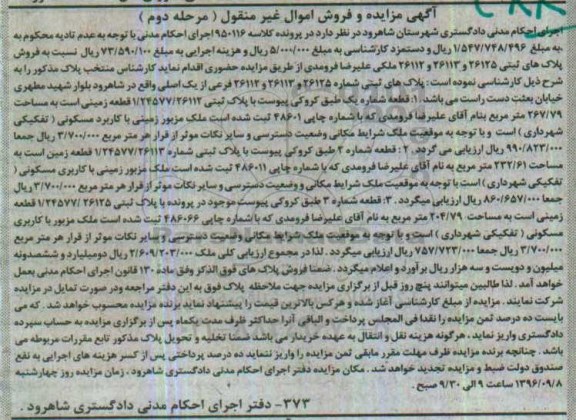 آگهی مزایده و فروش اموال غیر منقول ( مرحله دوم )
اجرای احکام مدنی دادگستری شهرستان شاهرود در نظر دارد در پرونده کلاسه 950116 اجرای احکام مدنی با توجه به عدم تادیه محکوم به
به مبلغ 1/547/748/496 ریال و دستمزد کارشناسی به مبلغ 5/000/000 ریال و هزینه اجرایی به مبلغ 73/590/100 ریال نسبت به فروش
پلاک های ثبتی 26125 و 26113 و 26112 ملکی علیرضا فرومدی از طریق مزایده حضوری اقدام نماید کارشناس منتخب پلاک مذکور را به
شرح ذیل کارشناسی نموده است : پلاک های ثبتی شماره 26125 و 26113 و 26112 فرعی از یک اصلی واقع در شاهرود بلوار شهید مطهری
خیابان بعثت دست راست می باشد. 1: قطعه شماره یک طبق کروکی پیوست با پلاک ثبتی 1/24577/26112 قطعه زمینی است به مساحت
267/79 متر مربع بنام آقای علیرضا فرومدی که با شماره چاپی 48601 ثبت شده است ملک مزبور زمینی با کاربرد مسکونی ( تفکیکی
شهرداری ) است و با توجه به موقعیت ملک شرایط مکانی وضعیت دسترسی و سایر نکات موثر از قرار هر متر مربع 3/700/000 ریال جمعا
990/823/000 ریال ارزیابی می گردد . 2 : قطعه شماره 2 طبق کروکی پیوست با پلاک ثبتی شماره 1/24577/26113 قطعه زمین است به
مساحت 232/61 متر مربع به نام آقای علیرضا فرومدی که با شماره چاپی 486011 ثبت شده است ملک مزبور زمینی با کاربری مسکونی (
تفکیکی شهرداری ) است با توجه به موقعیت ملک شرایط مکانی و وضعیت دسترسی و سایر نکات موثر از قرار هر متر مربع 3/700/000 ریال
جمعا 860/657/000 ریال ارزیابی میگردد . 3: قطعه شماره 3 طبق کروکی پیوست موجود در پرونده با پلاک ثبتی 1/24577/26125 قطعه
زمینی است به مساحت 204/79 متر مربع به نام آقای علیرضا فرومدی که با شماره چاپی 486066 ثبت شده است ملک مزبور با کاربری
مسکونی ( تفکیکی شهرداری ) است و با توجه به موقعیت ملک شرایط مکانی و وضعیت دسترسی و سایر نکات موثر از قرار هر متر مربع
3/700/000 ریال جمعا 757/723/000 ریال ارزیابی میگردد . لذا در مجموع ارزیابی کلی ملک 2/609/203/000 ریال دومیلیارد و ششصدونه
میلیون و دویست و سه هزار ریال برآورد و اعلام میگردد . ضمنا فروش پلاک های فوق الذکر وفق ماده 130 قانون اجرای احکام مدنی بعمل
خواهد آمد . لذا طالبین میتوانند پنج روز قبل از برگزاری مزایده جهت ملاحظه پلاک فوق به این دفتر مراجعه ودر صورت تمایل در مزایده
شرکت نمایند . مزایده از مبلغ کارشناسی آغاز شده و هرکس بالاترین قیمت را پیشنهاد نماید برنده مزایده محسوب خواهد شد . که می
بایست ده درصد ثمن مزایده را نقدا فی المجلس پرداخت و الباقی آنرا حداکثر ظرف مدت یکماه پس از برگزاری مزایده به حساب سپرده
دادگستری واریز نماید . هرگونه هزینه نقل و انتقال به عهده خریدار می باشد ضمنا تخلیه و تحویل پلاک مذکور تابع مقررات مربوطه می
باشد . چنانچه برنده مزایده ظرف مهلت مقرر مابقی ثمن مزایده را واریز ننماید ده درصد پرداختی پس از کسر هزینه های اجرایی به نفع
صندوق دولت ضبط و مزایده تجدید خواهد شد . مکان مزایده دفتر اجرای احکام مدنی دادگستری شاهرود . زمان مزایده روز چهارشنبه
1396/09/8 ساعت 9 الی 9/30 صبح .
373- دفتر اجرای احکام مدنی دادگستری شاهرود .